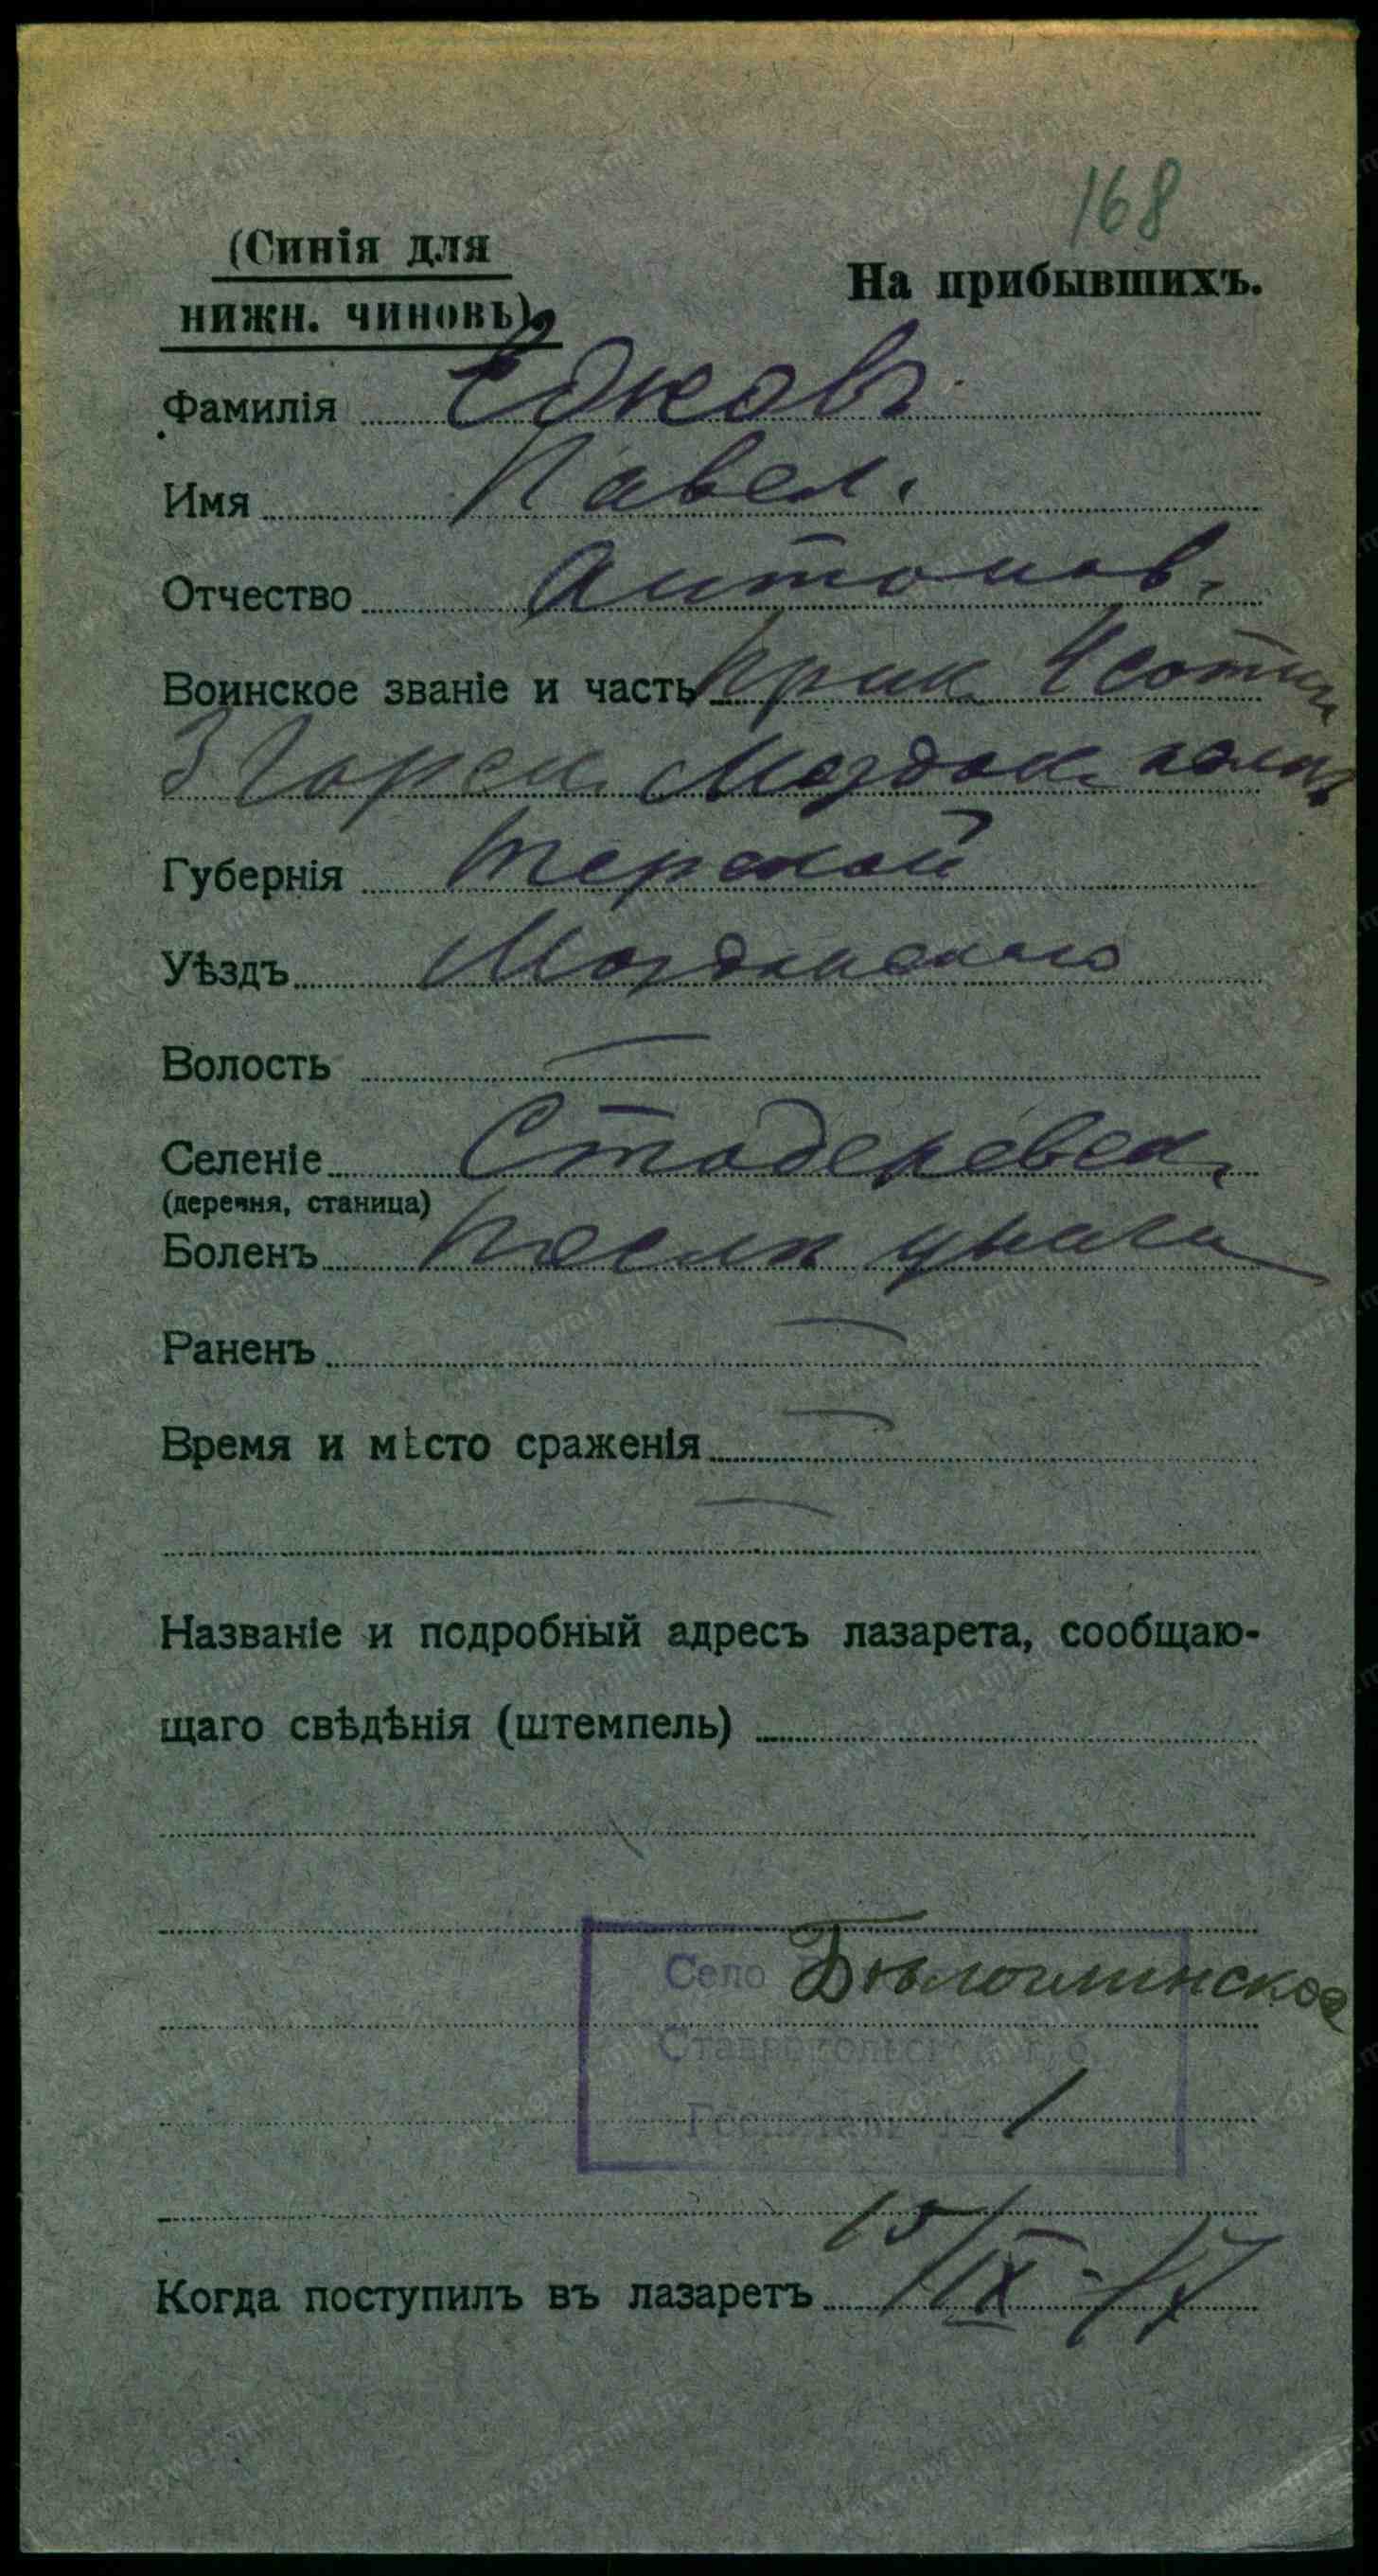 168
(Синія для
На прибывшихъ.
нижн. чиновъ)
Фамилія Едковъ
Имя Павел.
Отчество Антонов.
Воинское званіе и часть Прик 4 сотни
3 Горск. Моздок. полка
Губернія Терской
Уѣздъ Моздокскаго
Волость —
Селеніе Стодеревск.
(деревня, станица)
Боленъ
Раненъ —
Время и мѣсто сраженія —
—
Названіе и подробный адресъ лазарета, сообщаю-
щаго свѣдѣнія (штемпель)
Село Бѣлоглинское
Ставропольской губ.
Госпиталь № 1
Когда поступилъ въ лазаретъ 15/IX-17